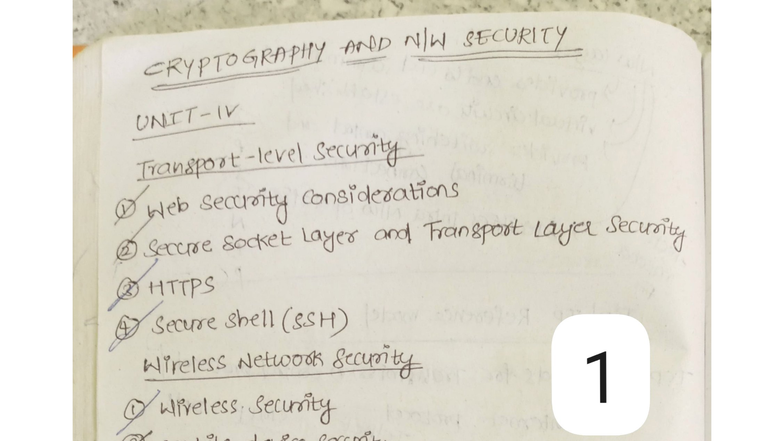 CRYPTOGRAPHY AND N/W SECURITY
UNIT-IV
Transport-level Security
① Web Security Considerations
② Secure Socket Layer and Transport Layer Security
③ HTTPS
④ Secure Shell (SSH)
Wireless Network Security
① Wireless Security
1